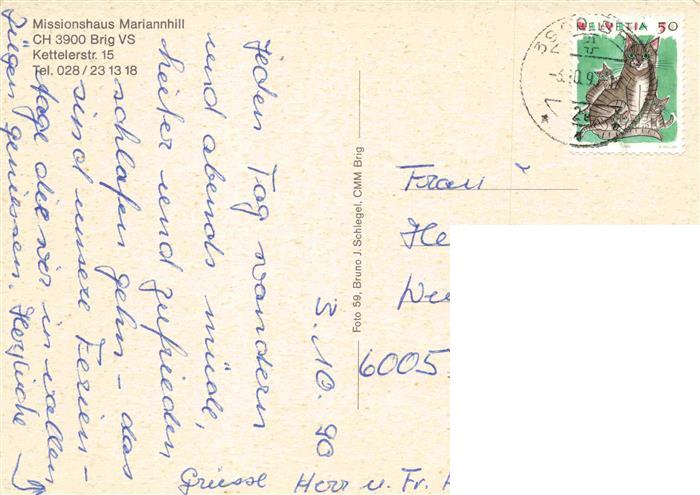 Missionshaus Mariannhill
CH 3900 Brig VS
Kettelerstr. 15
Tel. 028 / 23 13 18
HELVETIA 50
3.10.90
Jeden Tag wandern
und abends müde,
heiter und zufrieden
schlafen gehn – das
sind unsere Ferien-
tage die wir in vollen
Zügen geniessen. Herzliche
Grüsse Herr u. Fr.
Foto 59, Bruno J. Schlegel, CMM Brig
Frau
He
6005